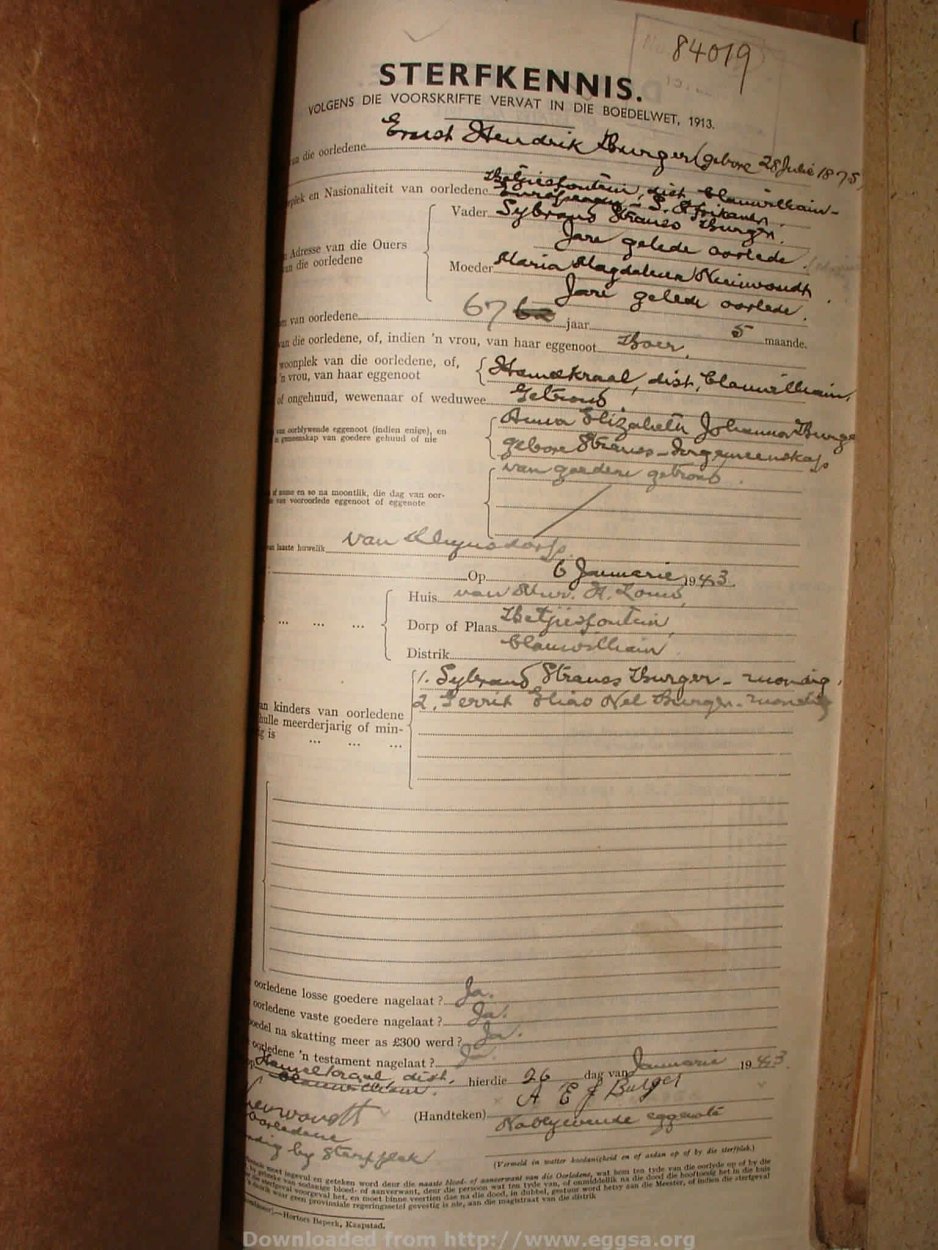 84019
STERFKENNIS.
VOLGENS DIE VOORSKRIFTE VERVAT IN DIE BOEDELWET, 1913.
die oorledene Ernst Hendrik Burger (gebore 28 Julie 1875)
en Nasionaliteit van oorledene Betjiesfontein, dist. Clanwilliam
Europeaan, S. Afrikaner.
Vader Sybrand Strauss Burger.
Jare gelede oorlede.
Adresse van die Ouers
van die oorledene
Moeder Maria Magdalena Nieuwoudt
Jare gelede oorlede.
van oorledene 67 jaar 5 maande.
van die oorledene, of, indien 'n vrou, van haar eggenoot Boer.
woonplek van die oorledene, of,
'n vrou, van haar eggenoot
dist. Clanwilliam.
of ongehuud, wewenaar of weduwee Getroud
oorblywende eggenoot (indien enige), en
gemeenskap van goedere gehuud of nie
Anna Elizabeth Johanna Burger
gebore Strauss - In gemeenskap
van goedere getroud.
of name en so na moontlik, die dag van oor-
van vooroorlede eggenoot of eggenote
laaste huwelik van Rhynsdorp.
Op 6 Januarie 1943.
Huis van Mnr. H. Louw,
Dorp of Plaas Betjiesfontein,
Distrik Clanwilliam
kinders van oorledene
hulle meerderjarig of min-
is
1. Sybrand Strauss Burger - mondig,
2. Gerrit Elias Nel Burger - mondig
oorledene losse goedere nagelaat? Ja.
oorledene vaste goedere nagelaat? Ja.
boedel na skatting meer as £300 werd? Ja.
oorledene 'n testament nagelaat? Ja.
dist. Clanwilliam. hierdie 26 dag van Januarie 1943
(Handteken) A E J Burger
Nablywende eggenote
oorledene
by sterfplek
(Vermeld in watter hoedanigheid en of aldan op of by die sterfplek.)
moet ingevul en geteken word deur die naaste bloed- of aanverwant van die Oorledene, wat
Hortors Beperk, Kaapstad.
Downloaded from http://www.eggsa.org